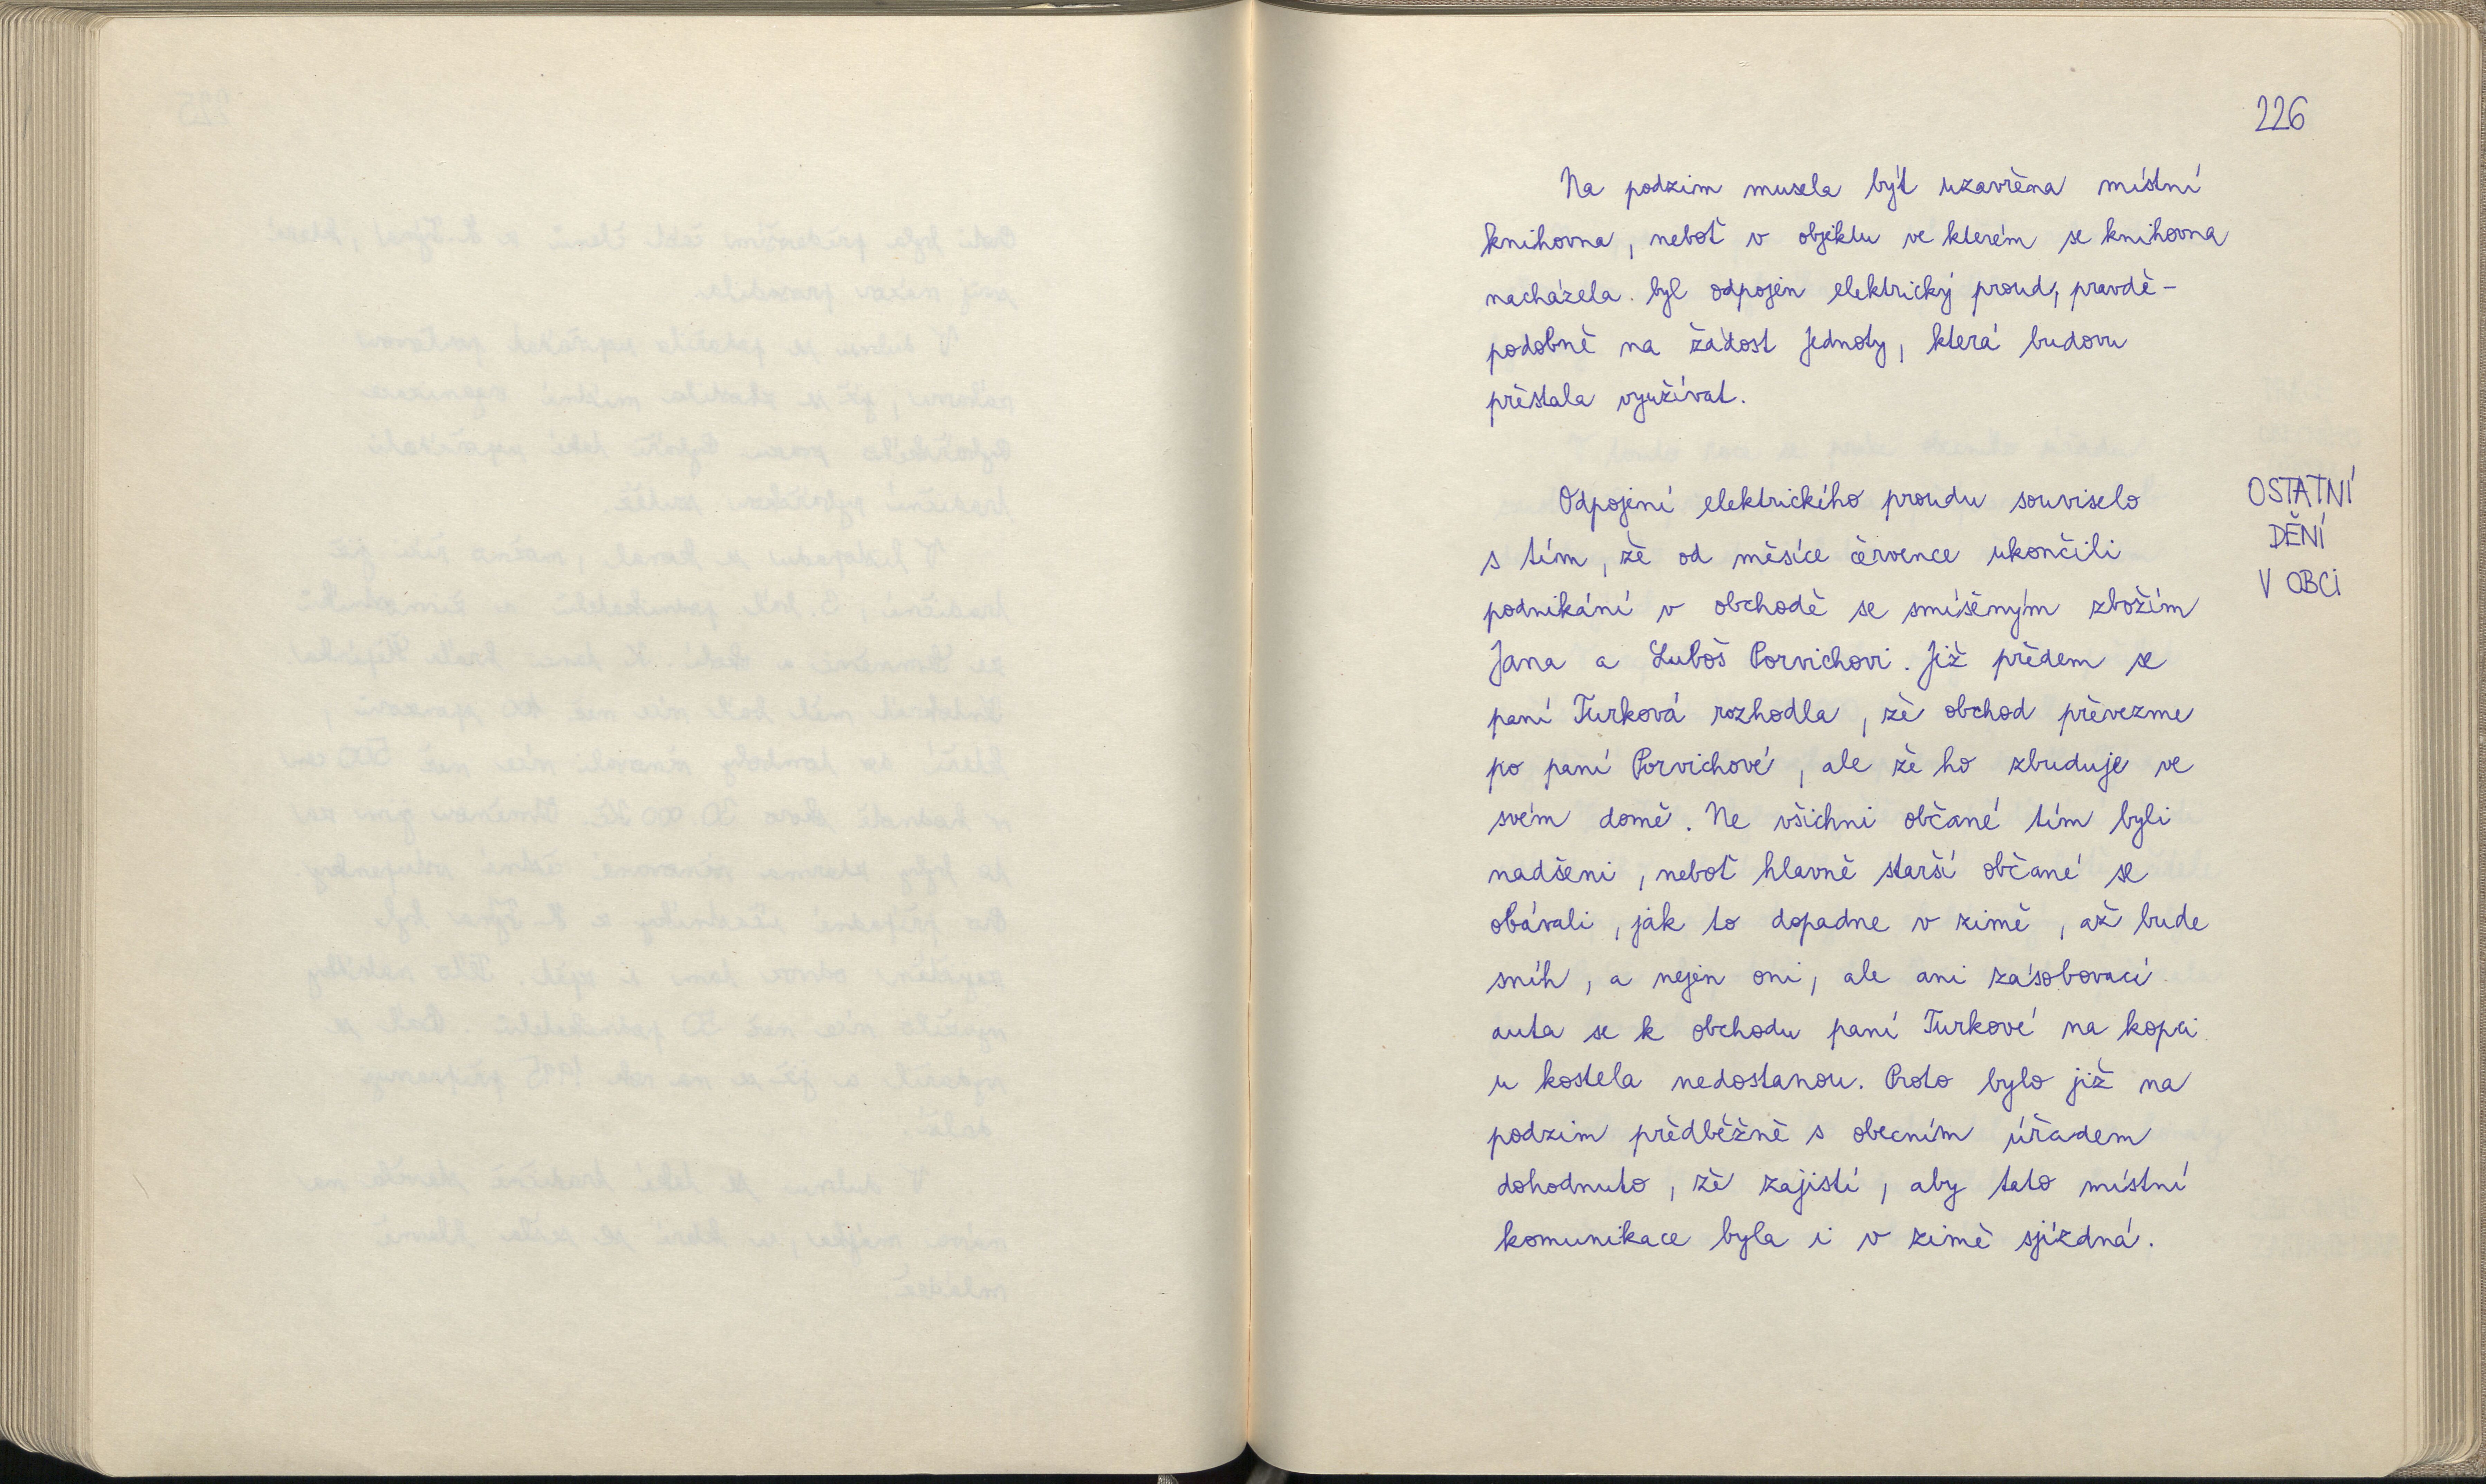 226
Na podzim musela být uzavřena místní
knihovna, neboť v objektu ve kterém se knihovna
nacházela. byl odpojen elektrický proud, pravdě-
podobně na žádost Jednoty, která budovu
přestala využívat.
Odpojení elektrického proudu souviselo
s tím, že od měsíce července ukončili
podnikání v obchodě se smíšeným zbožím
Jana a Luboš Porvichovi. Již předem se
paní Turková rozhodla, že obchod převezme
po paní Porvichové, ale že ho zbuduje ve
svém domě. Ne všichni občané tím byli
nadšeni, neboť hlavně starší občané se
obávali, jak to dopadne v zimě, až bude
sníh, a nejen oni, ale ani zásobovací
auta se k obchodu paní Turkové na kopci
u kostela nedostanou. Proto bylo již na
podzim předběžně s obecním úřadem
dohodnuto, že zajistí, aby tato místní
komunikace byla i v zimě sjízdná.
OSTATNÍ
DĚNÍ
V OBCI